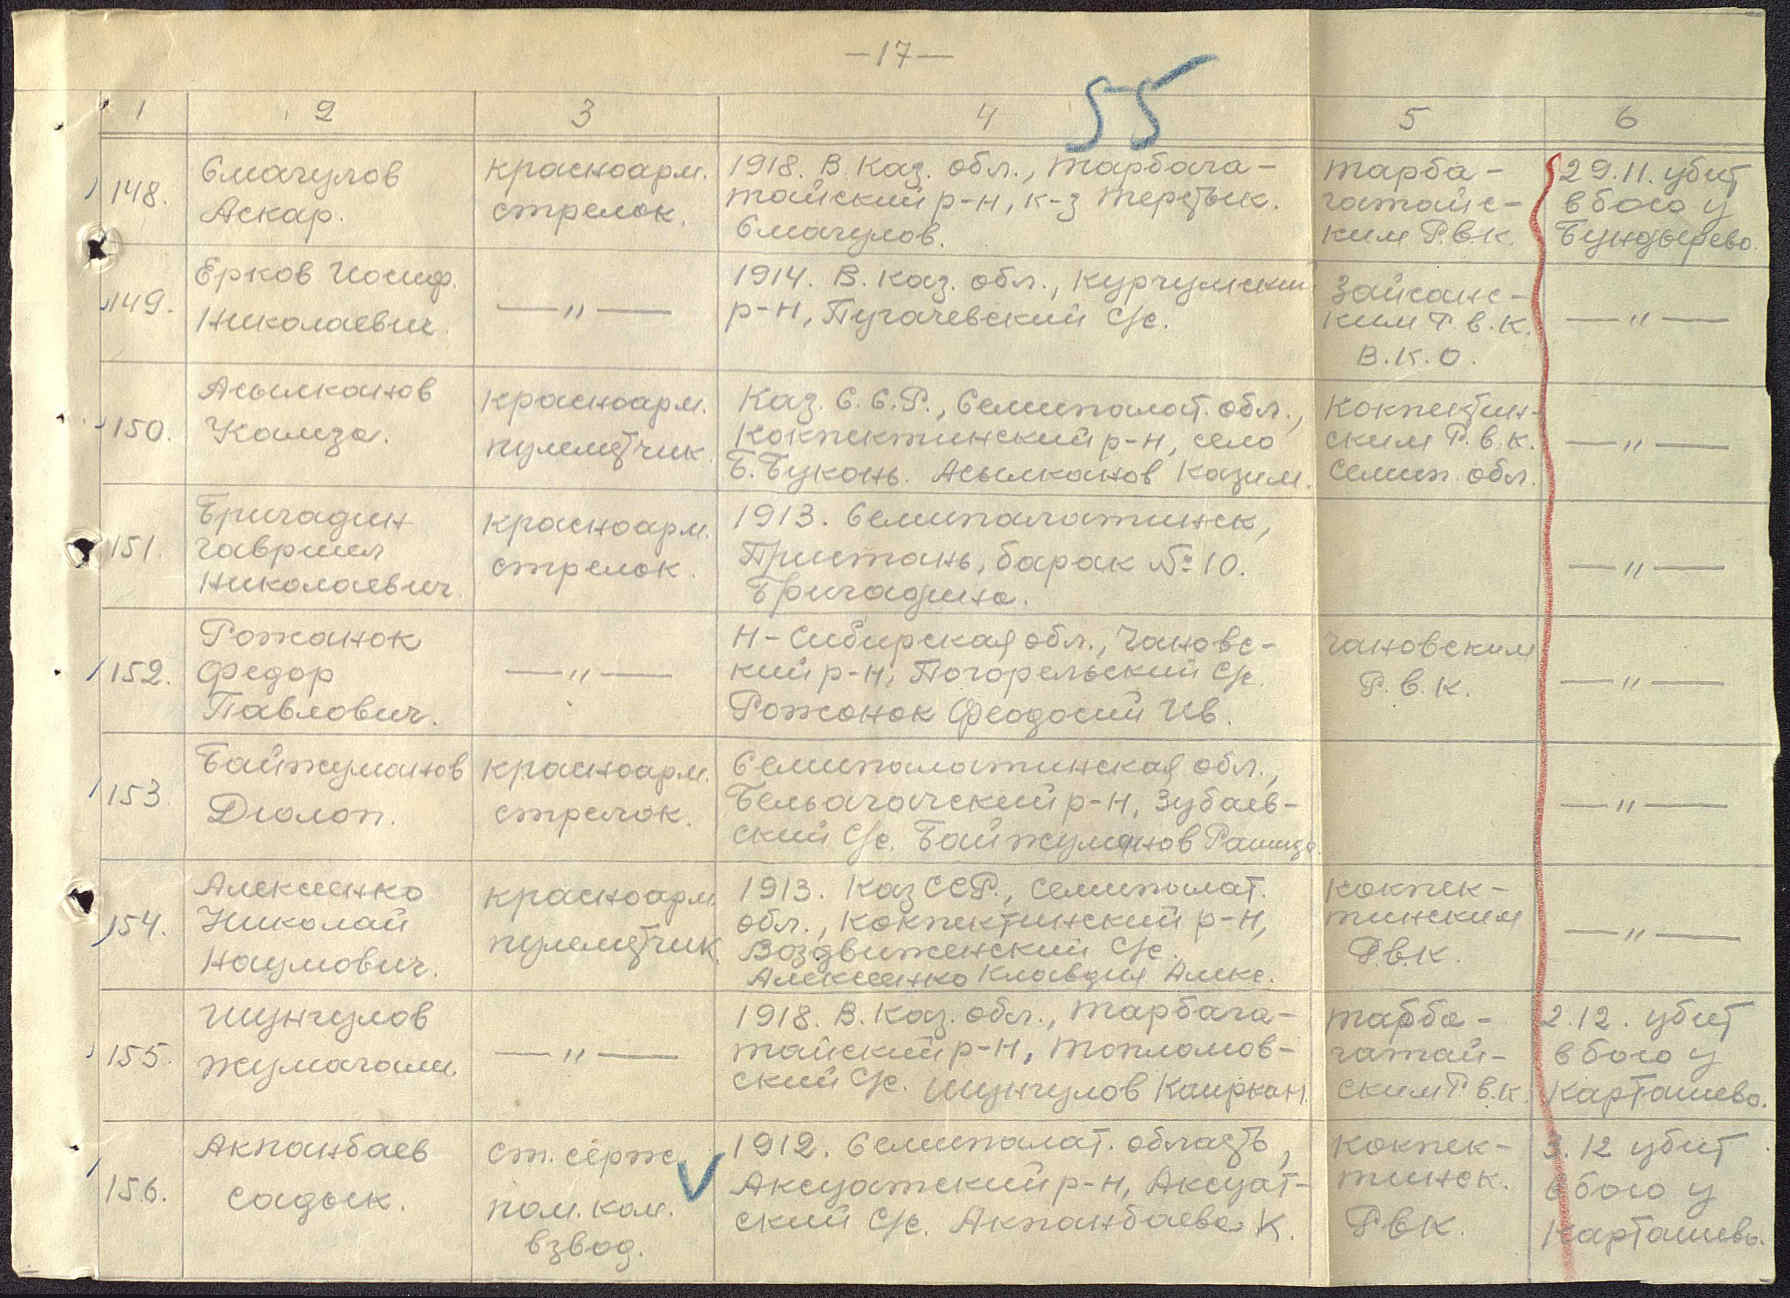 —17—
55
1 2 3 4 5 6
148. Смагулов Аскар.
красноарм. стрелок.
1918. В. Каз. обл., Тарбага-
тайский р-н, к-з Терстык.
Смагулов.
Тарба-
гатайс-
ким Р.В.К.
29.11. убит
в бою у
Бундырево.
149. Ерков Иосиф.
Николаевич.
—"—
1914. В. Каз. обл., Курчумский
р-н, Пугачевский С/с.
Зайсанс-
ким Р.В.К.
В.К.О.
—"—
150. Асылканов
Камза.
красноарм.
пулеметчик.
Каз. С.С.Р., Семипалат. обл.,
Кокпектинский р-н, село
Б.Буконь. Асылканов Казим.
Кокпектин-
ским Р.В.К.
Семип. обл.
—"—
151. Бригадин
Гавриил
Николаевич.
красноарм.
стрелок.
1913. Семипалатинск,
Пристань, барак № 10.
Бригадина.
—"—
152. Рожанок
Федор
Павлович.
—"—
Н-Сибирская обл., Чановс-
кий р-н, Погорельский С/с.
Рожонок Феодосий Ив.
Чановским
Р.В.К.
—"—
153 Байжуманов
Дюлоп.
красноарм.
стрелок.
Семипалатинская обл.,
Бельагачский р-н, Зубаев-
ский С/с. Байжуманов
—"—
154. Алексеенко
Николай
Наумович.
красноарм.
пулеметчик.
1913. Каз ССР., Семипалат.
обл., Кокпектинский р-н,
Воздвиженский С/с.
Алексеенко Клавдия Алекс.
Кокпек-
тинским
Р.В.К.
—"—
155. Шунгулов
Жумагали.
—"—
1918. В. Каз. обл., Тарбага-
тайский р-н, Топломов-
ский С/с. Шунгулов Каиркан.
Тарба-
гатай-
ским Р.В.К.
2.12. убит
в бою у
Карташево.
156. Акпанбаев
Садык.
ст. серж.
пом. ком.
взвод.
1912. Семипалат. область,
Аксуатский р-н, Аксуат-
ский С/с. Акпанбаева К.
Кокпек-
тинск.
РВК.
3.12 убит
в бою у
Карташево.